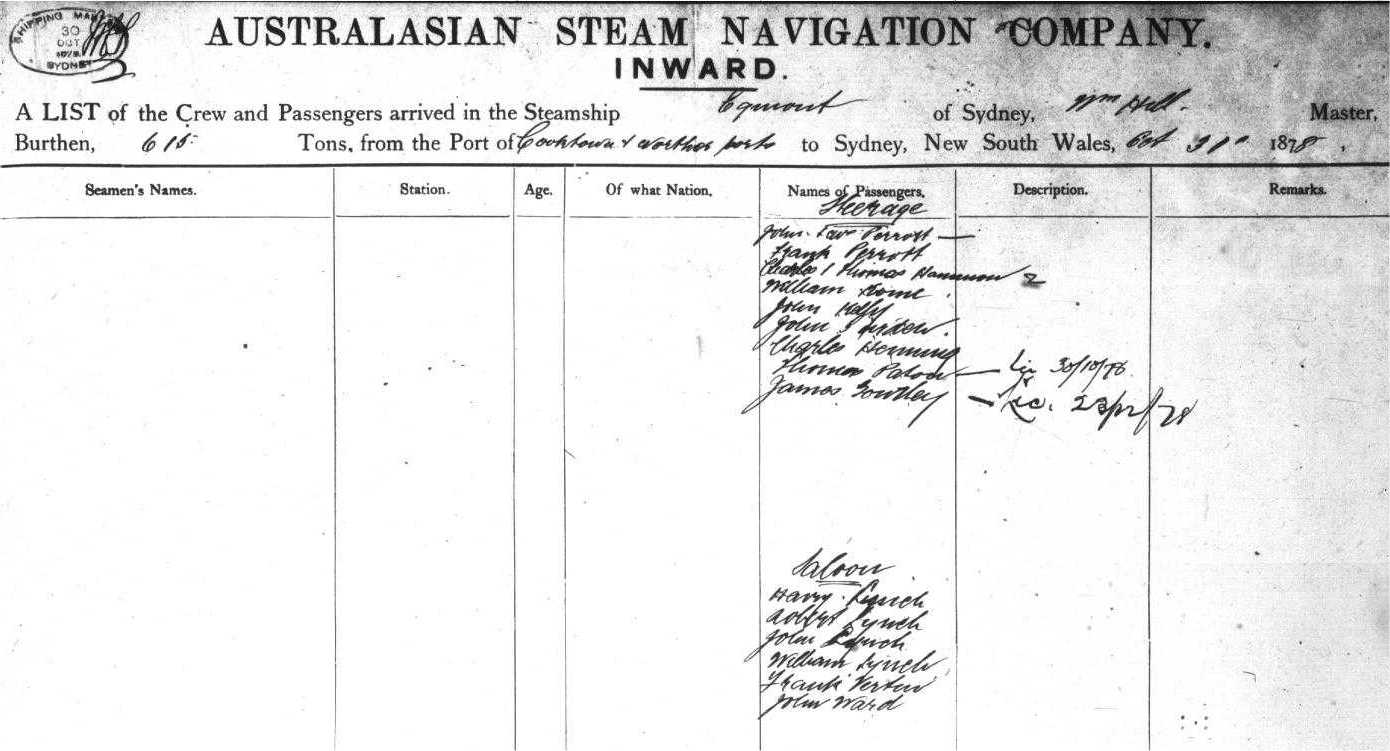 SHIPPING MA
30
OCT
SYDNEY
AUSTRALASIAN STEAM NAVIGATION COMPANY.
INWARD.
A LIST of the Crew and Passengers arrived in the Steamship Egmont of Sydney, Wm Hill. Master,
Burthen, 615 Tons, from the Port of Cooktown & ports to Sydney, New South Wales, Oct 1878,
Seamen's Names. Station. Age. Of what Nation. Names of Passengers. Description. Remarks.
Steerage
John Perrott —
Frank Perrott
Charles Thomas 2
William
John
John
Charles Henning
Thomas Paton — 30/10/78
James —
Saloon
Harry Lynch
Robert Lynch
John Lynch
William Lynch
Frank
John Ward